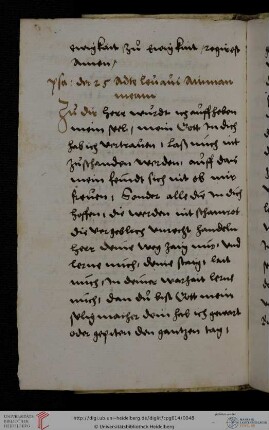 ewigkait zu ewigkait regirest
Amen,
psa: der 25 Adte levavi Animam
meam
Zu dir herr wurdt ich auff heben
mein sel, mein Gott In dich
hab ich vertrauen, laß mich nit
zuschanden werden, auff das
mein feindt sich nit ob mir
freuen, Sonder alle die In dich
hoffen, die werden nit schamrot
die vergeblich unrecht handeln
herr deine weg zaig mir, und
lerne mich, deine steig, lait
mich, In deiner warhait lerne
mich, dan du bist Gott mein
seligmacher dein hab ich gewart
den gantzen tag,
http://digi.ub.uni-heidelberg.de/diglit/cpg814/0048
© Universitätsbibliothek Heidelberg